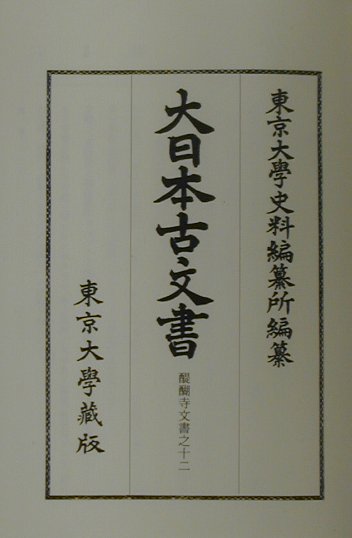 東京大學史料編纂所編纂
大日本古文書
醍醐寺文書之十二
東京大學藏版